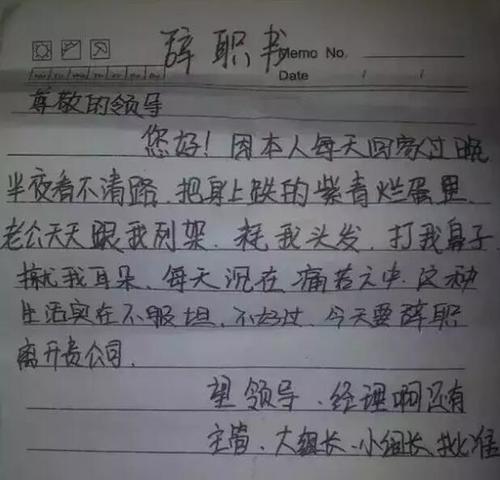 辞职书
Memo No.
Date / /
尊敬的领导
您好！因本人每天回家过晚
半夜看不清路、把身上跌的紫青烂蛋黑、
老公天天跟我列架、耗我头发、打我鼻子、
揪我耳朵、每天沉在痛苦之中、这种
生活实在不服担、不好过、今天要辞职
离开贵公司.
望领导、经理啊还有
主管、大组长、小组长、批准